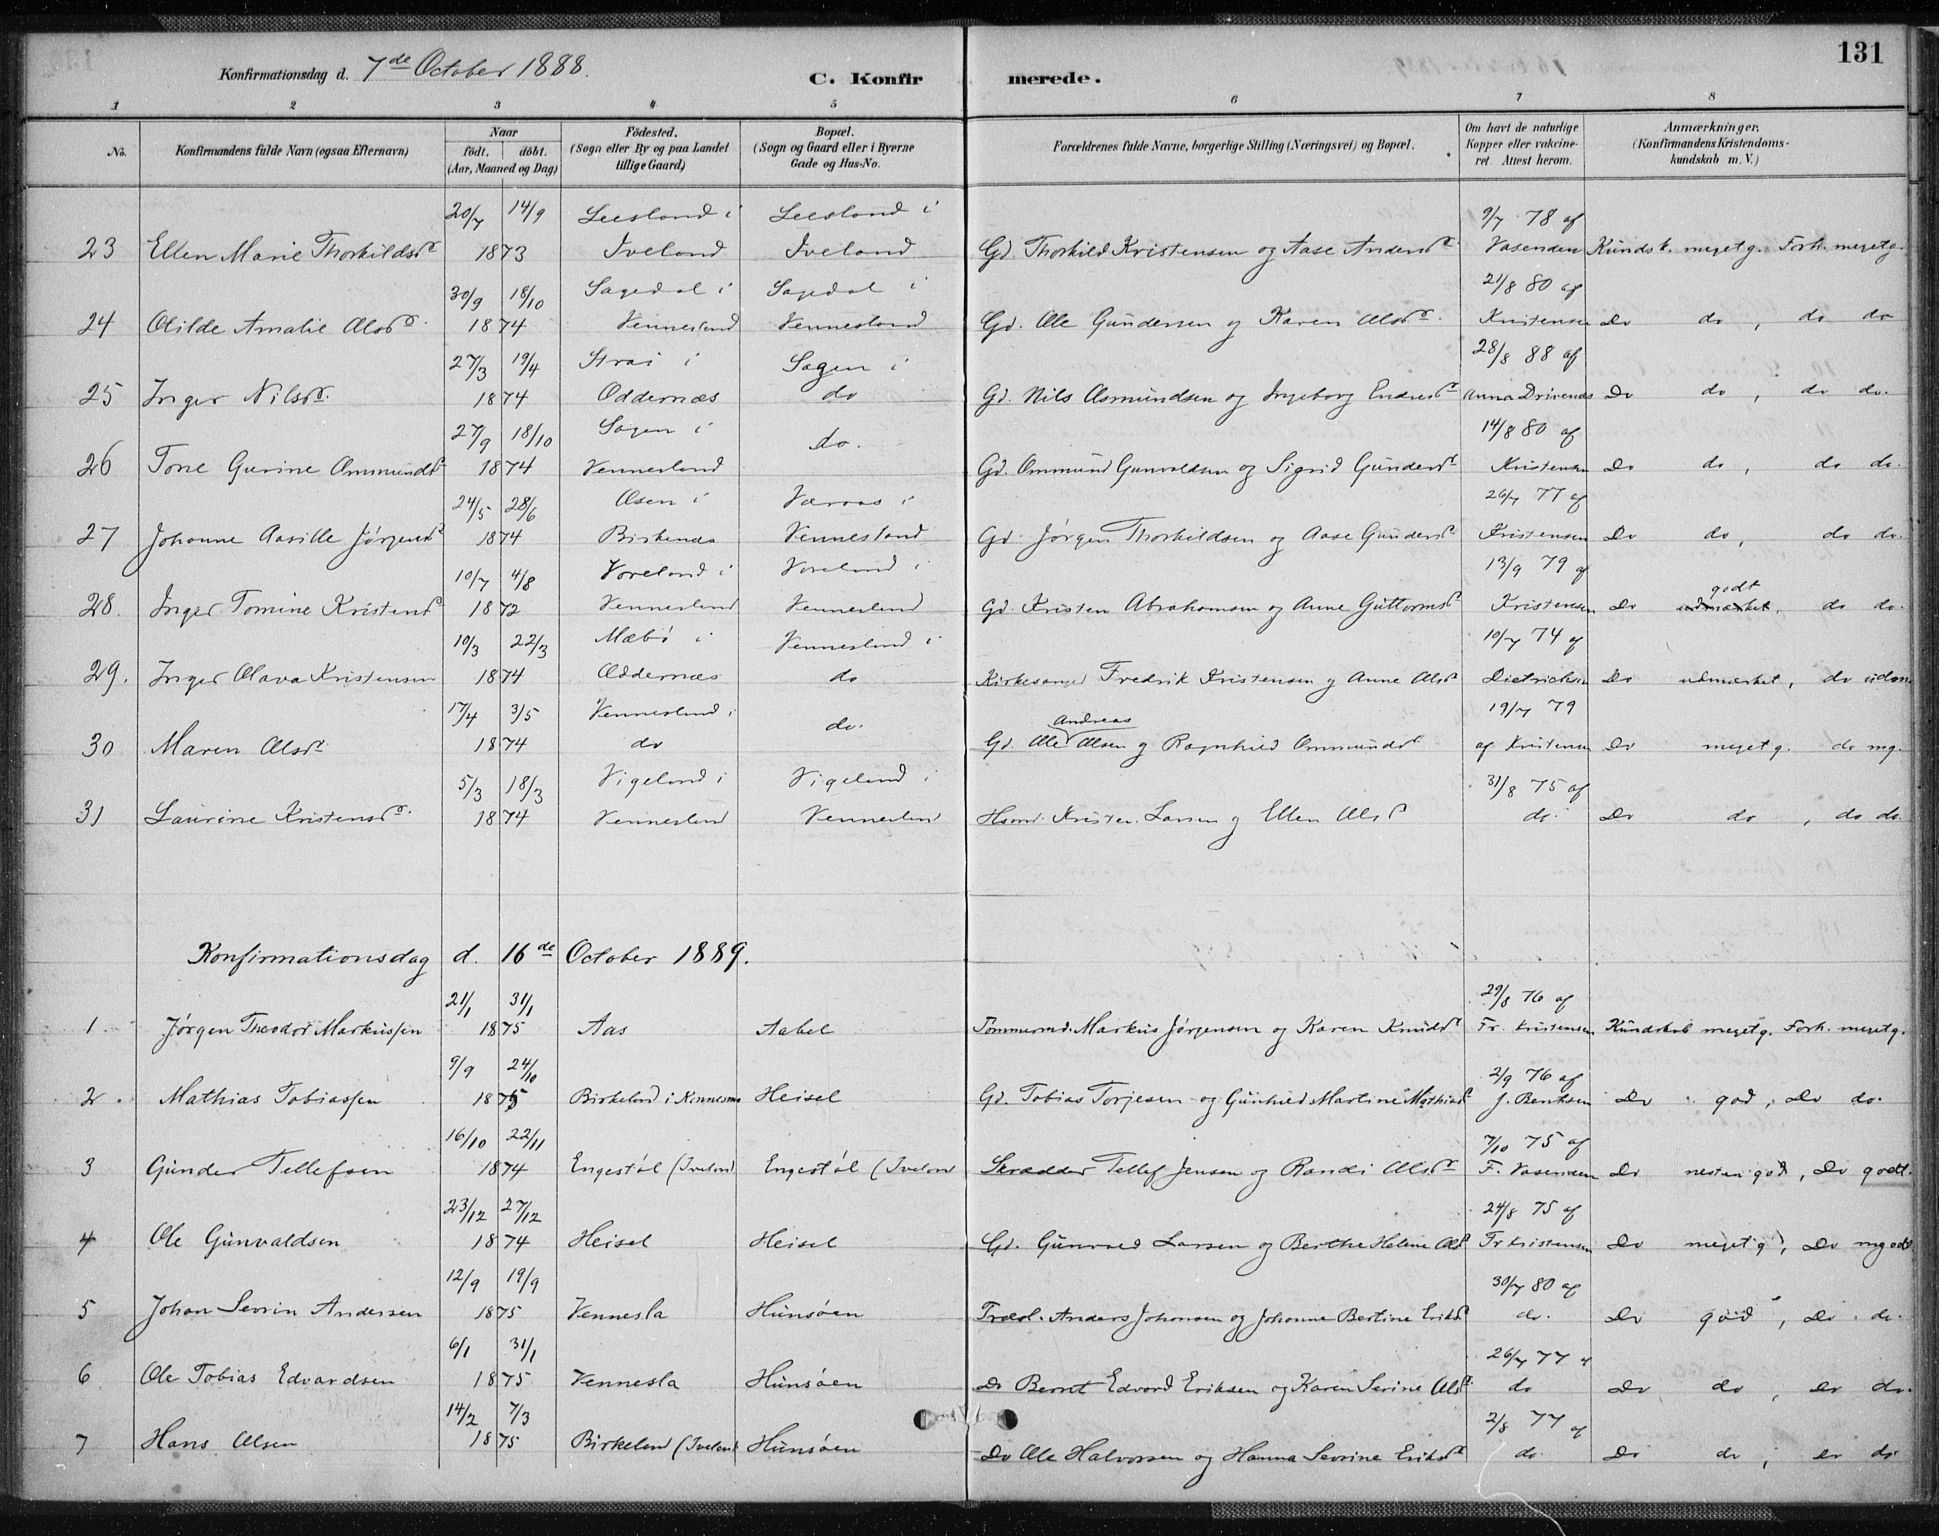 131
Konfirmationsdag d. 7de October 1888.
C. Konfirmerede.
1 2 3 4 5 6 7 8
No. Konfirmandens fulde Navn (ogsaa Efternavn) Naar født. døbt. (Aar, Maaned og Dag) Födested. (Sogn eller By og paa Landet tillige Gaard) Bopæl. (Sogn og Gaard eller i Byerne Gade og Hus-No. Forældrenes fulde Navne, borgerlige Stilling (Næringsvei) og Bopæl. Om havt de naturlige Kopper eller vakcineret Attest herom. Anmærkninger. (Konfirmandens Kristendomskundskab m. V.)
20/7 14/9 Leesland i Leesland i 9/7 78 af
23 Ellen Marie Thorkildsd. 1873 Iveland Iveland Gd. Thorkild Kristensen og Aase Andersd. Vasenden Kundsk. meget g. Forh. meget g.
30/9 18/10 Sagedal i Sagedal i 21/8 80 af
24 Olilde Amalie Olsd. 1874 Vennesland Vennesland Gd. Ole Gundersen og Karen Olsd. Kristensen Do do, do do
27/3 19/4 Strai i Sagen i 28/8 88 af
25 Inger Nilsd. 1874 Oddernæs do Gd. Nils Asmundsen og Ingeborg Endresd. Anna Drivenes Do do, do do.
27/9 18/10 Sagen i do. 14/8 80 af
26 Tone Gurine Ommundsd. 1874 Vennesland Gd. Ommund Gunvaldsen og Sigrid Gundersd. Kristensen Do do, do do.
24/5 28/6 Øsen i Væraas i 26/7 77 af
27 Johanne Aasille Jørgensd. 1874 Birkenæs Vennesland Gd. Jørgen Thorkildsen og Aase Gundersd. Kristensen Do do, do do.
10/7 4/8 Voreland i Voreland i 13/9 79 af
28. Inger Tomine Kristensd. 1872 Vennesland Vennesland Gd. Kristen Abrahamsen og Anne Guttormsd. Kristensen Do udmærket godt, do do.
10/3 22/3 Mæbø i Vennesland i 10/7 74 af
29. Inger Olava Kristensen 1874 Oddernæs do Kirkesanger Fredrik Kristensen og Anne Olsd. Dietrichsen Do udmærket, do udm
17/4 3/5 Vennesland i do. 19/7 79
30 Maren Olsd. 1874 do Gd. Ole Andreas Olsen og Ragnhild Ommundsd. af Kristensen Do meget g. do mg.
5/3 18/3 Vigeland i Vigeland i 31/8 75 af
31 Laurine Kristensd. 1874 Vennesland Vennesland Hsmd. Kristen Larsen og Ellen Olsd. do. Do do, do do.
Konfirmationsdag d. 16de October 1889.
21/1 31/1 29/8 76 af
1. Jørgen Theodor Markussen 1875 Aas Aabel Tømmermd. Markus Jørgensen og Karen Knudsd. Fr. Kristensen Kundskab meget g. Forh. meget g.
9/9 24/10 2/9 76 af
2. Mathias Tobiassen 1875 Birkeland i Heisel Gd. Tobias Torjesen og Gunhild Martine Mathiasd. J. Bentsen Do god, Do do.
16/10 22/11 7/10 75 af
3 Gunder Tellefsen 1874 Engestøl (Iveland Engestøl (Iveland Skrædder Tellef Jensen og Randi Olsd. F. Vasenden Do nesten god, Do godt.
23/12 27/12 24/8 75 af
4 Ole Gunvaldsen 1874 Heisel Heisel Gd. Gunvald Larsen og Berthe Helene Olsd. Fr Kristensen Do meget g, Do mgodt
12/9 19/9 30/7 80 af
5 Johan Sevrin Andersen 1875 Vennesla Hunsøen Træsl. Anders Johansen og Johanne Bertine Eriksd. do. Do god, Do do.
6/1 31/1 26/7 77 af
6 Ole Tobias Edvardsen 1875 Vennesla Hunsøen Do Berret Edvard Eriksen og Karen Serine Olsd. do Do do, Do do.
14/2 7/3 2/8 77 af
7 Hans Olsen 1875 Birkeland (Iveland Hunsøen Do Ole Halvorsen og Hanna Sevrine Eriksd. do. Do do, Do do